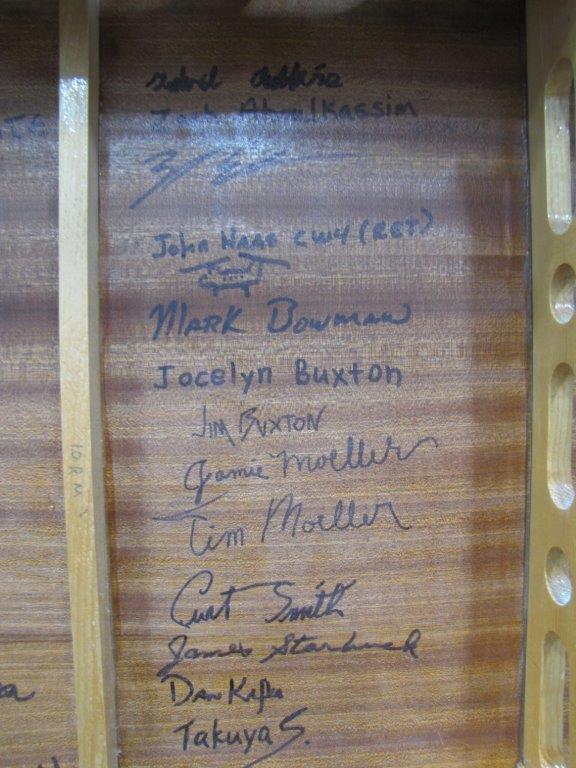 AboulKassim
John Haas CW4 (RET)
Mark Bowman
Jocelyn Buxton
Jim Buxton
Jamie Moeller
Tim Moeller
Curt Smith
James Starbuck
Dan Kafka
Takuya S.
10RM